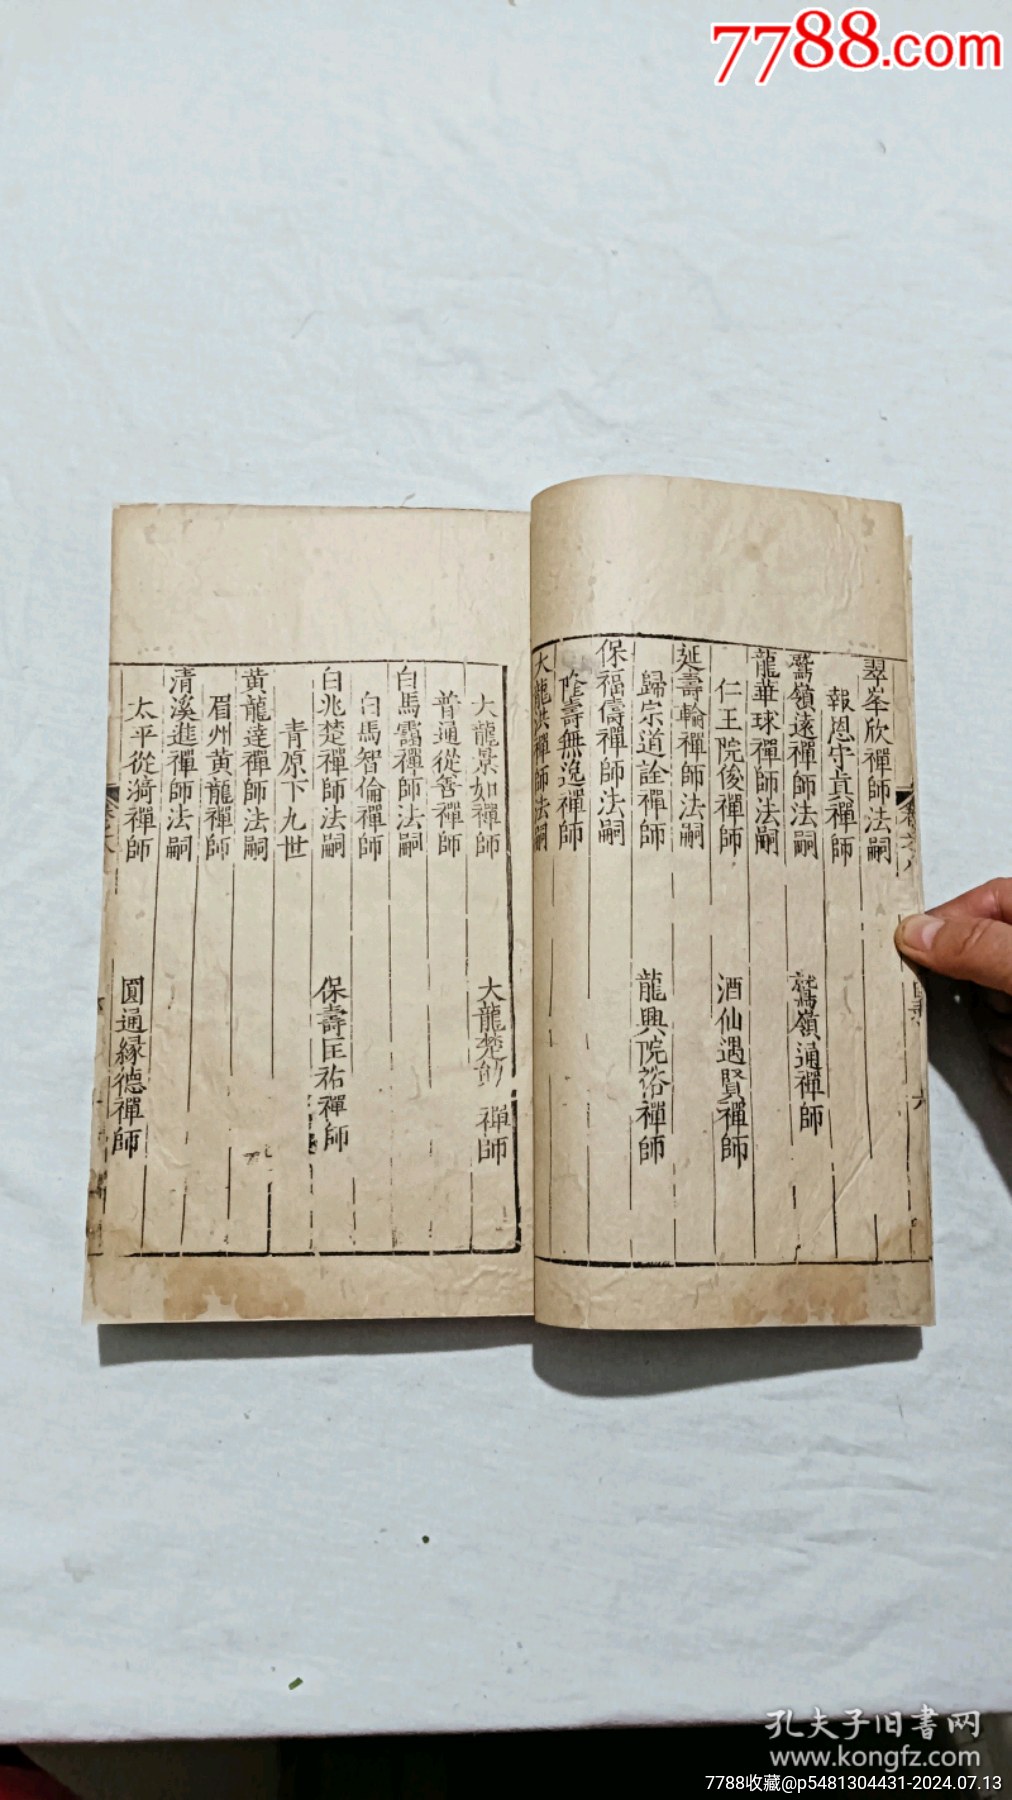 7788.com
翠峯欣禪師法嗣
報恩守真禪師
鷲嶺遠禪師法嗣
鷲嶺通禪師
龍華球禪師法嗣
仁王院俊禪師
酒仙遇賢禪師
延壽輪禪師法嗣
歸宗道詮禪師
龍興院裕禪師
保福儔禪師法嗣
隆壽無逸禪師
大龍洪禪師法嗣
大龍景如禪師
大龍楚勛禪師
普通從善禪師
白馬靄禪師法嗣
白馬智倫禪師
白兆楚禪師法嗣
保壽匡祐禪師
青原下九世
黃龍達禪師法嗣
眉州黃龍禪師
清溪進禪師法嗣
太平從漪禪師
圓通緣德禪師
孔夫子旧書网
www.kongfz.com
7788收藏@p5481304431-2024.07.13